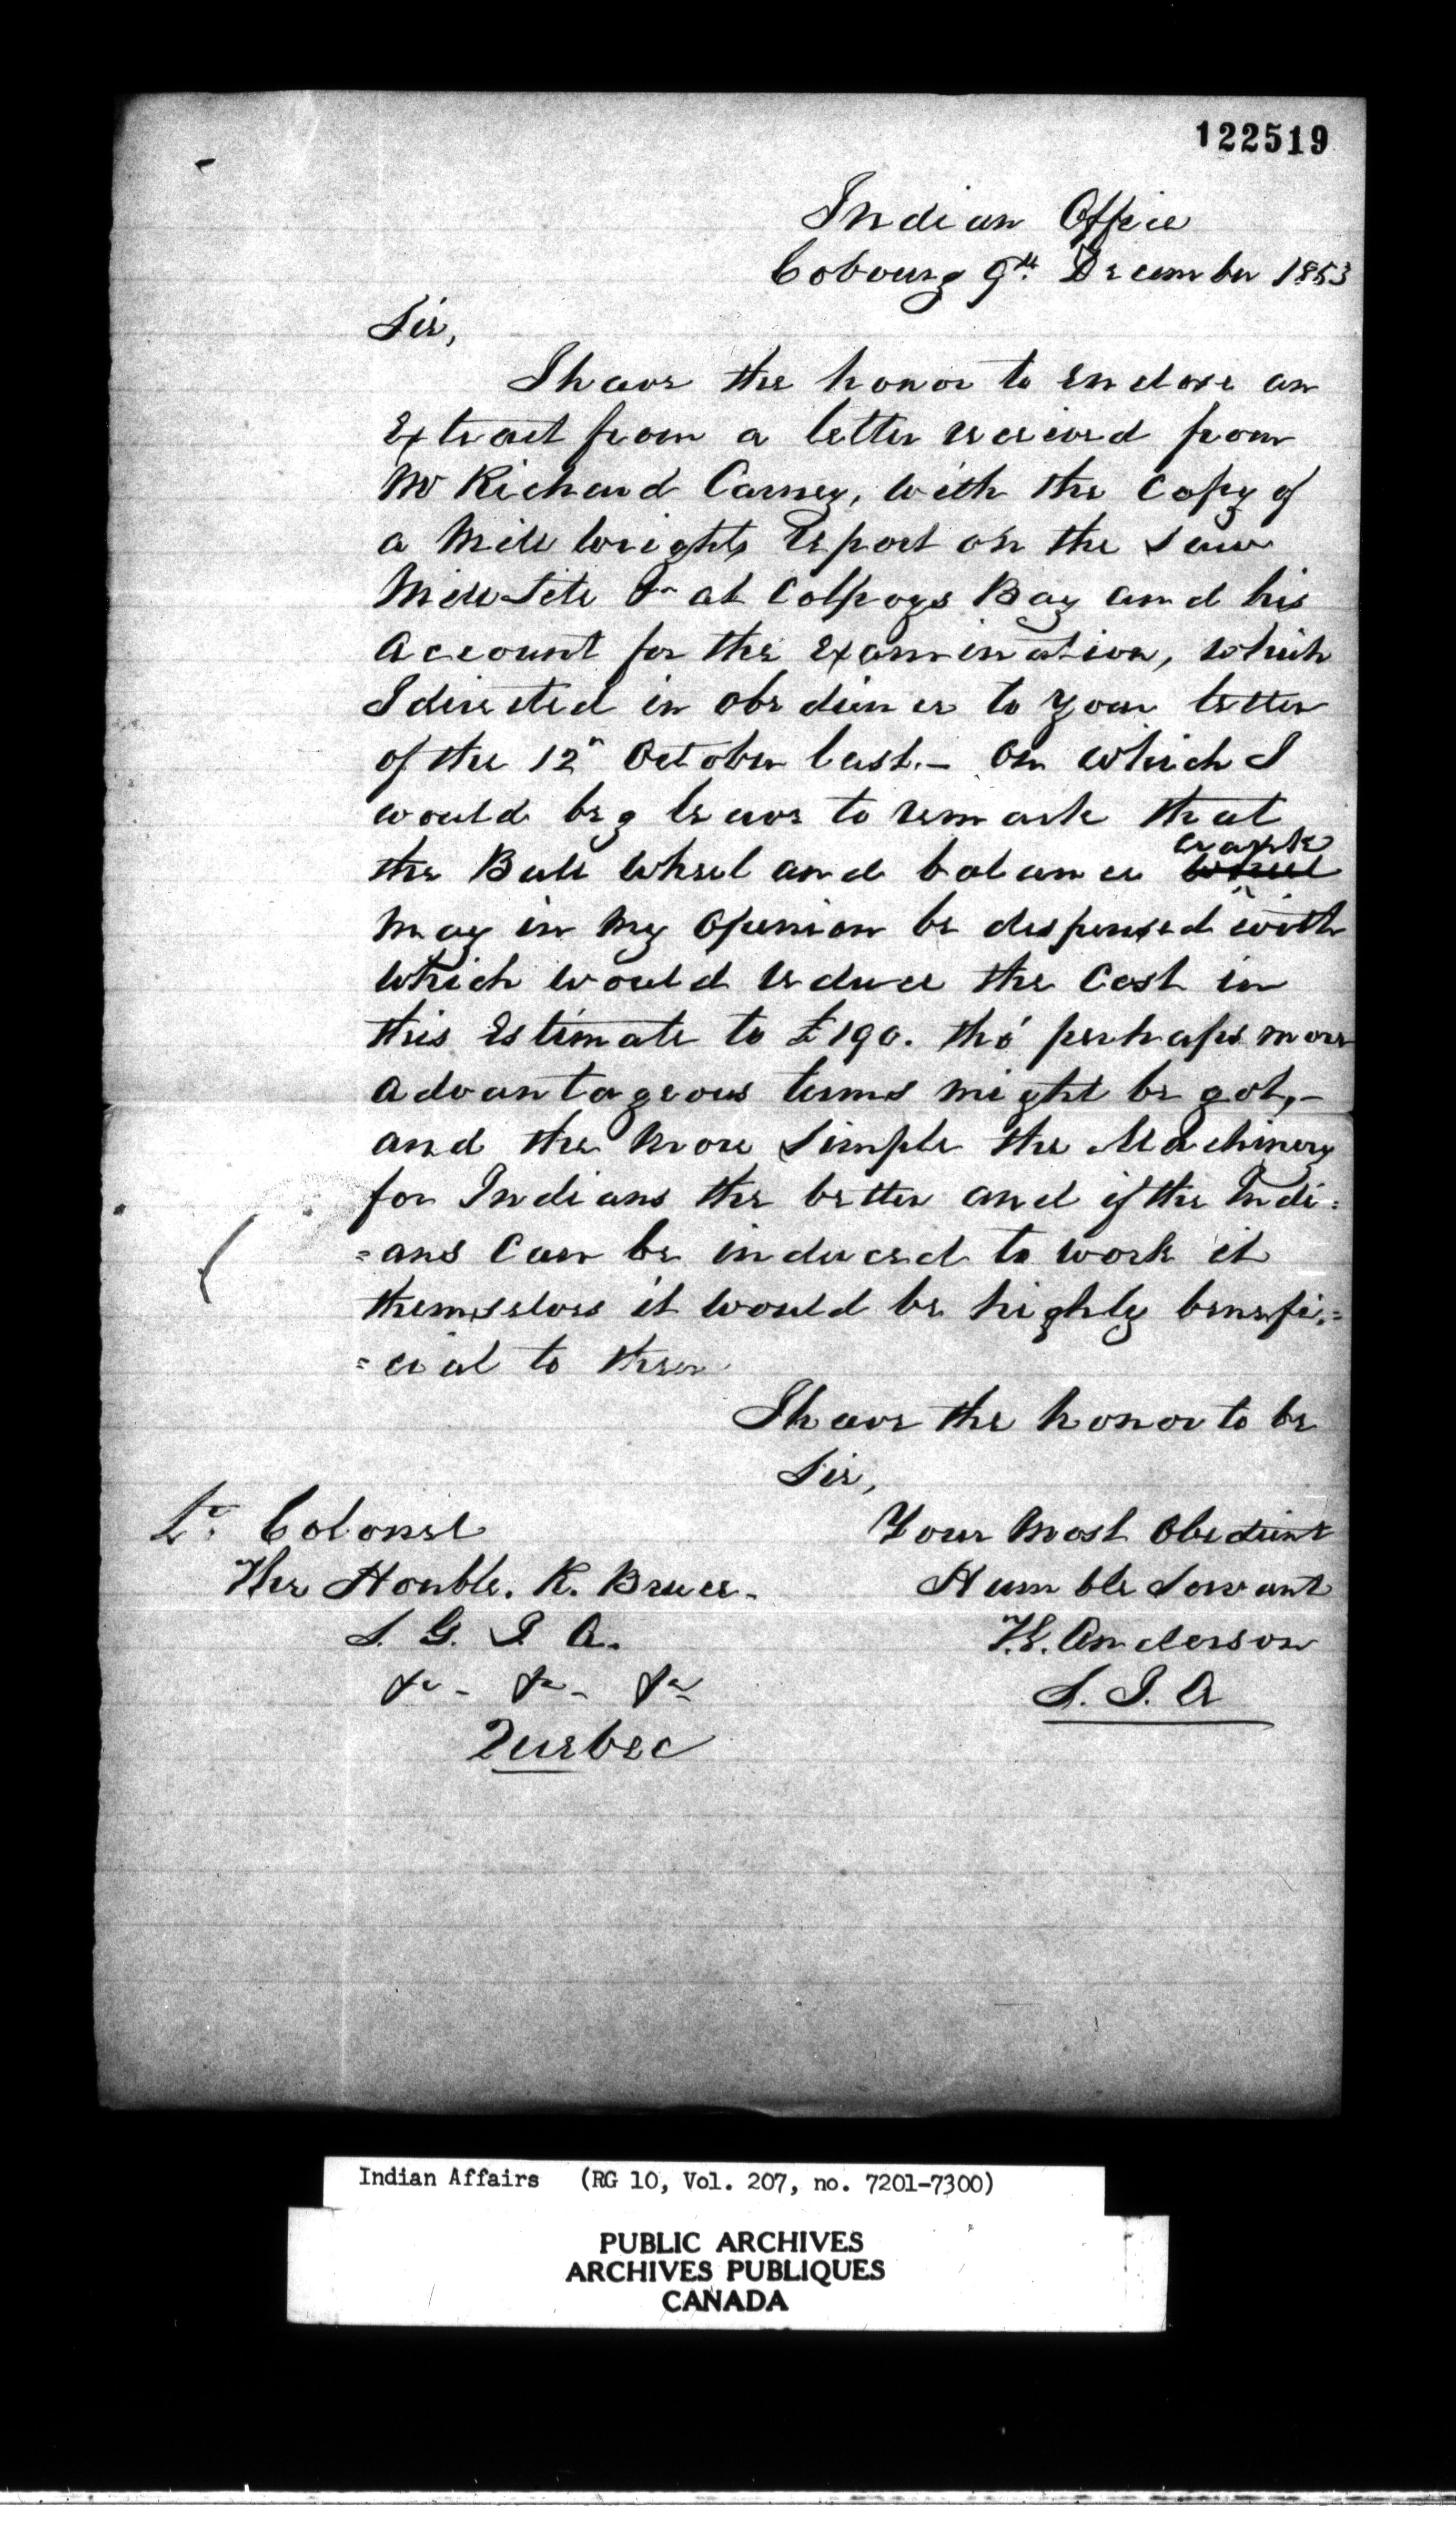 122519
Indian Office
Cobourg 9th December 1853
Sir,
I have the honor to enclose an
Extract from a letter received from
Mr Richard Carney, with the Copy of
a Mill wrights Report on the Saw
Mill Site &c at Colpoys Bay and his
Account for the examination, which
I directed in obedience to your letter
of the 12th October last.— On which I
would beg leave to remark that
the Bull Wheel and balance wheel crank
may in my opinion be dispensed with
which would reduce the Cost in
this Estimate to £190. tho' perhaps more
advantageous terms might be got,—
and the more simple the Machinery
for Indians the better and if the Indi=
=ans Can be induced to work it
themselves it would be highly benefi=
=cial to them
I have the honor to be
Sir,
Your most Obedient
Humble Servant
T.G. Anderson
S. I. A
Lt. Colonel
The Honble. R. Bruce.
S. G. I. A.
&c - &c - &c
Quebec
Indian Affairs (RG 10, Vol. 207, no. 7201-7300)
PUBLIC ARCHIVES
ARCHIVES PUBLIQUES
CANADA